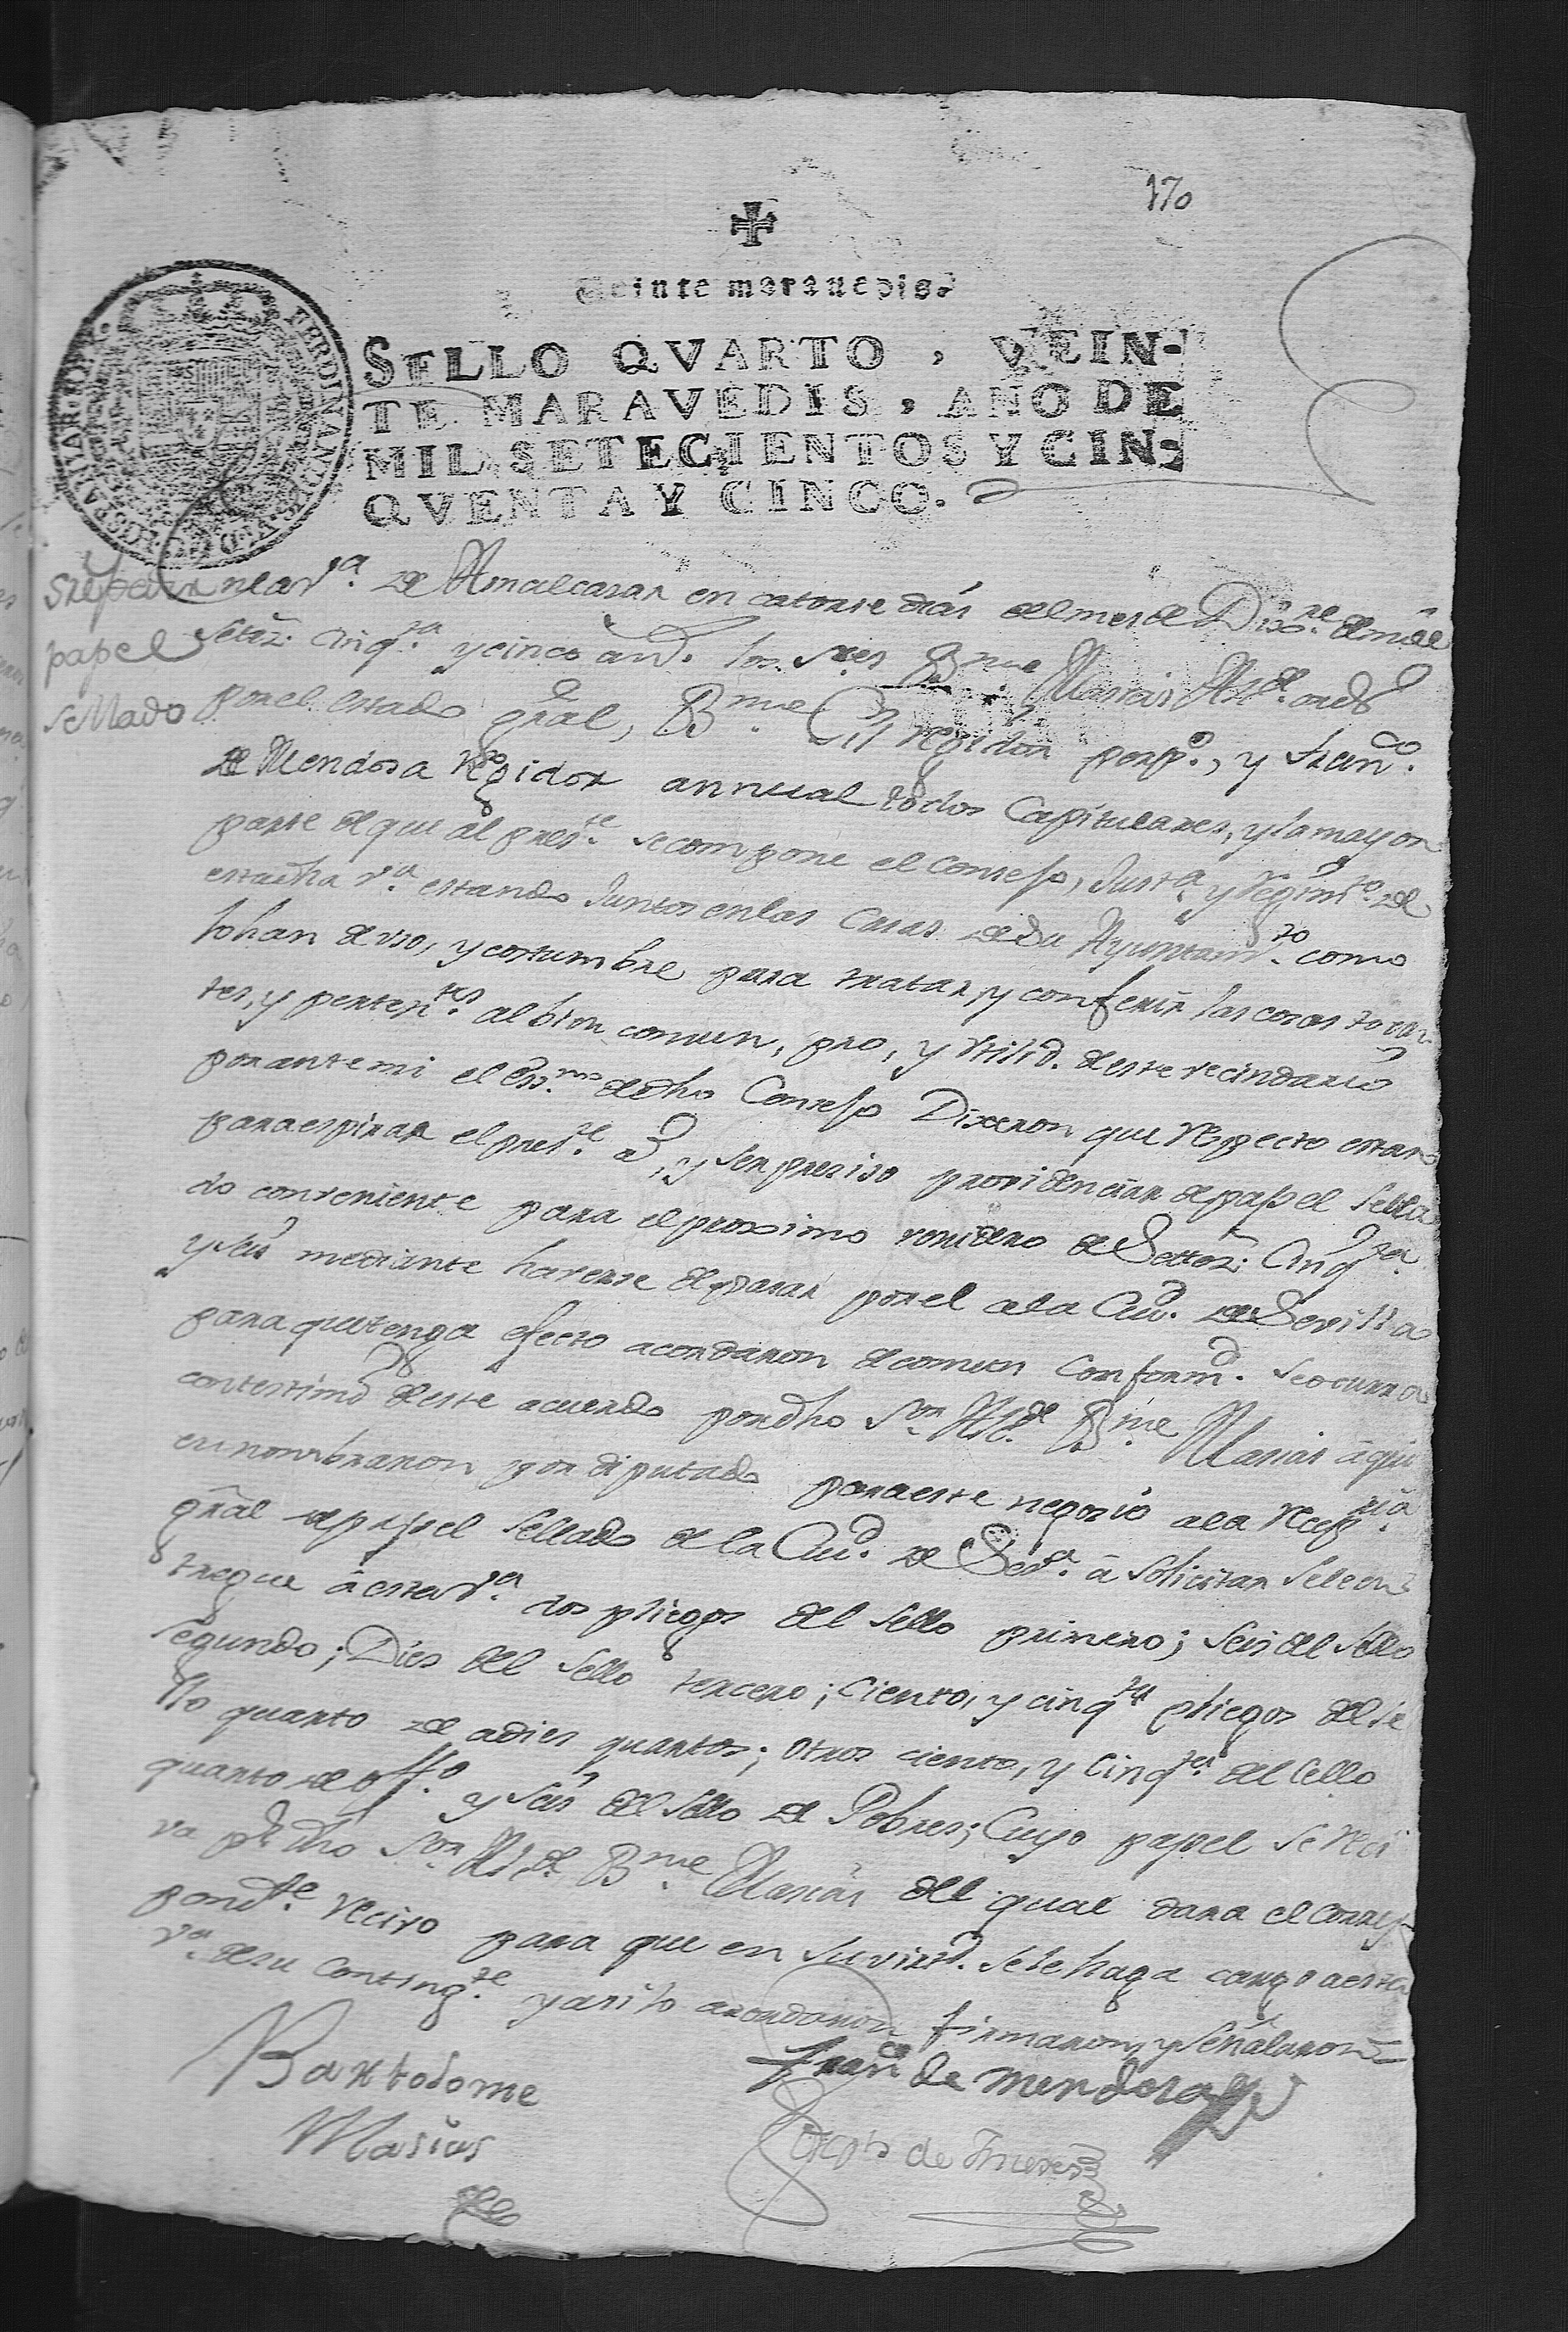 170
Veinte maravedis
SELLO QVARTO, VEIN-
TE MARAVEDIS, AÑO DE
MIL SETECIENTOS Y CIN-
QVENTA Y CINCO.
papel
sellado
en la v.ª de Aznalcasar en catorse dias del mes de Diz.re de mill
setez.s cinq.ta y cinco an.s los s.res B.me Masias Alc.de ord.o
por el estado gral, B.me Gil regidor perp.o, y Fran.co
de Mendosa Regidor annual todos Capitulares, y la mayor
parte de que al pres.te se compone el Consejo, Just.a y Regim.to de
esta dha v.ª estando Juntos en las Casas de su Ayuntam.to como
lo han de uso, y costumbre para tratar, y conferir las cosas tocan
tes, y pertez.tes al bien comun, pro, y Utilid.d de este vecindario
por ante mi el Ess.no de dho Consejo Dixeron que Respecto estar
para espirar el pres.te a.o, y ser presiso providenciar de papel sella
do conveniente para el proximo venidero de Settez.s Cinq.ta
y seis mediante haverse de pasar por el a la Ciu.d de Sevilla
para que tenga efecto acordaron de comun Conform.d se ocurra
con testim.o de este acuerdo por dho S.or Alc.de B.me Masias a qui
en nombraron por diputado para este negosio a la Recep.ria
gral de papel sellado de la Ciu.d de Sev.ª â solicitar se le en
tregue â esta v.ª dos pliegos del sello primero; seis del sello
segundo; Dies del sello tercero; Ciento, y cinq.ta pliegos del se
llo quarto de a dies quartos; otros ciento, y Cinq.ta del sello
quarto de off.o y seis del sello de Pobres; Cuyo papel se Reci
va p.r dho S.or Alc.de B.me Masias del qual dara el corres
pond.te Recivo para que en su virt.d se le haga cargo a esta
v.ª de su Conting.te y asi lo acordaron firmaron, y señalaron=
Bartolome
Masias
Fran.co de mendosa